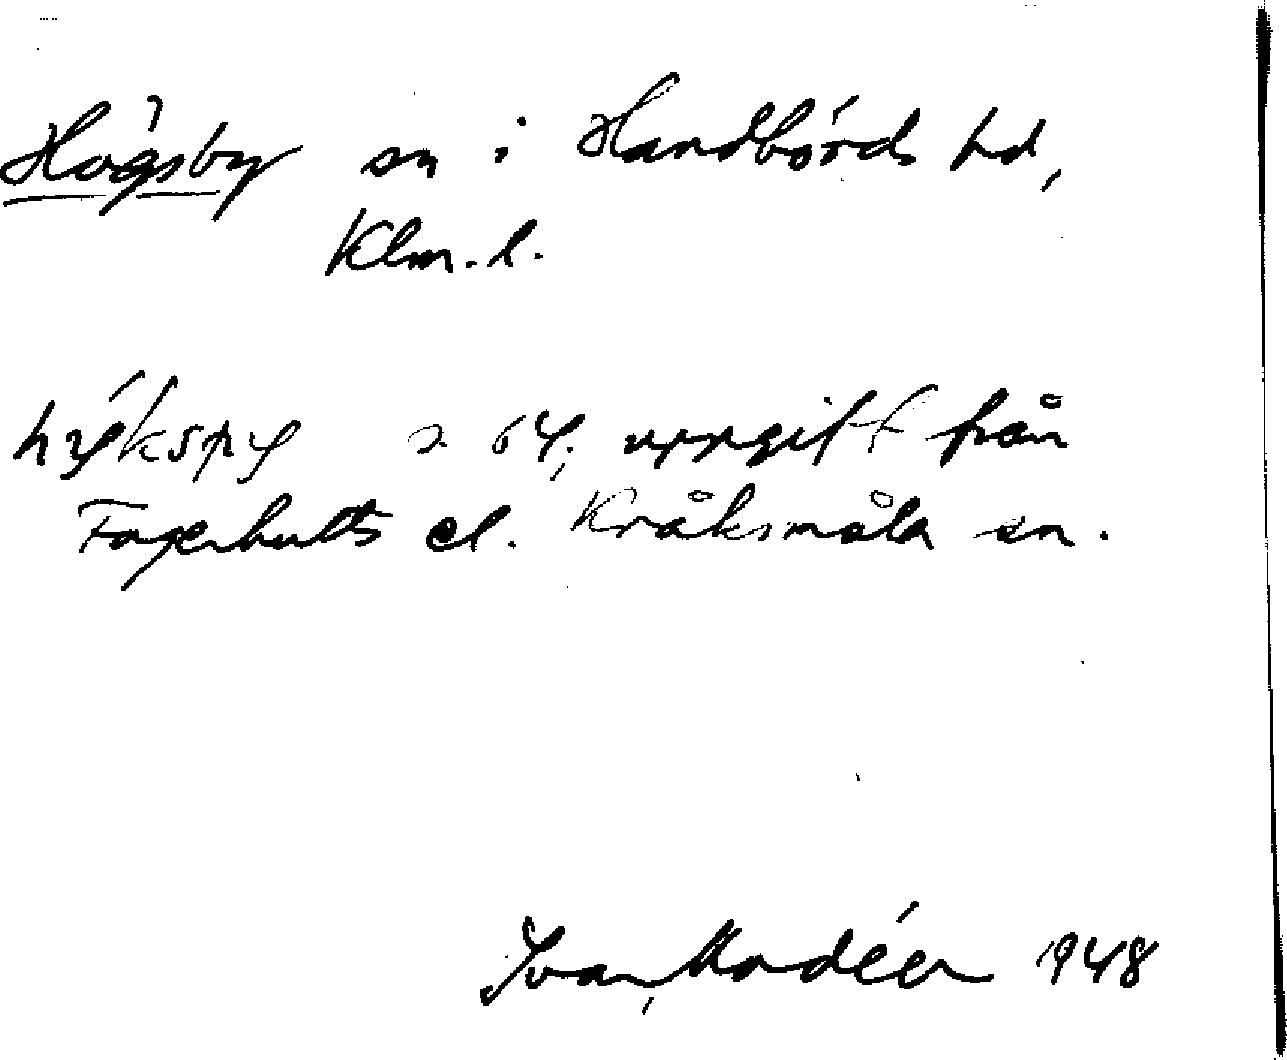 Högsby sn i Handbörds hd,
Klm. l.
uppgift från
Fagerhults el. Kråksmåla sn.
Ivar Modéer 1948